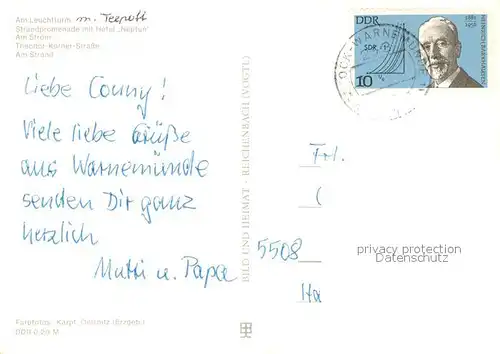 Am Leuchtturm m. Teepott
Strandpromenade mit Hotel „Neptun“
Am Strom
Theodor-Körner-Straße
Am Strand
Liebe Conny!
Viele liebe Grüße
aus Warnemünde
senden Dir ganz
herzlich
Mutti u. Papa
Farbfotos: Karpf, Oelsnitz (Erzgeb.)
DDR 0,20 M
BILD UND HEIMAT · REICHENBACH (VOGTL)
DDR
1881
1956
HEINRICH BARKHAUSEN
SDR
10
OCK-WARNEMÜNDE
Frl.
5508
privacy protection
VINTAGE-POSTCARD.COM
Ha